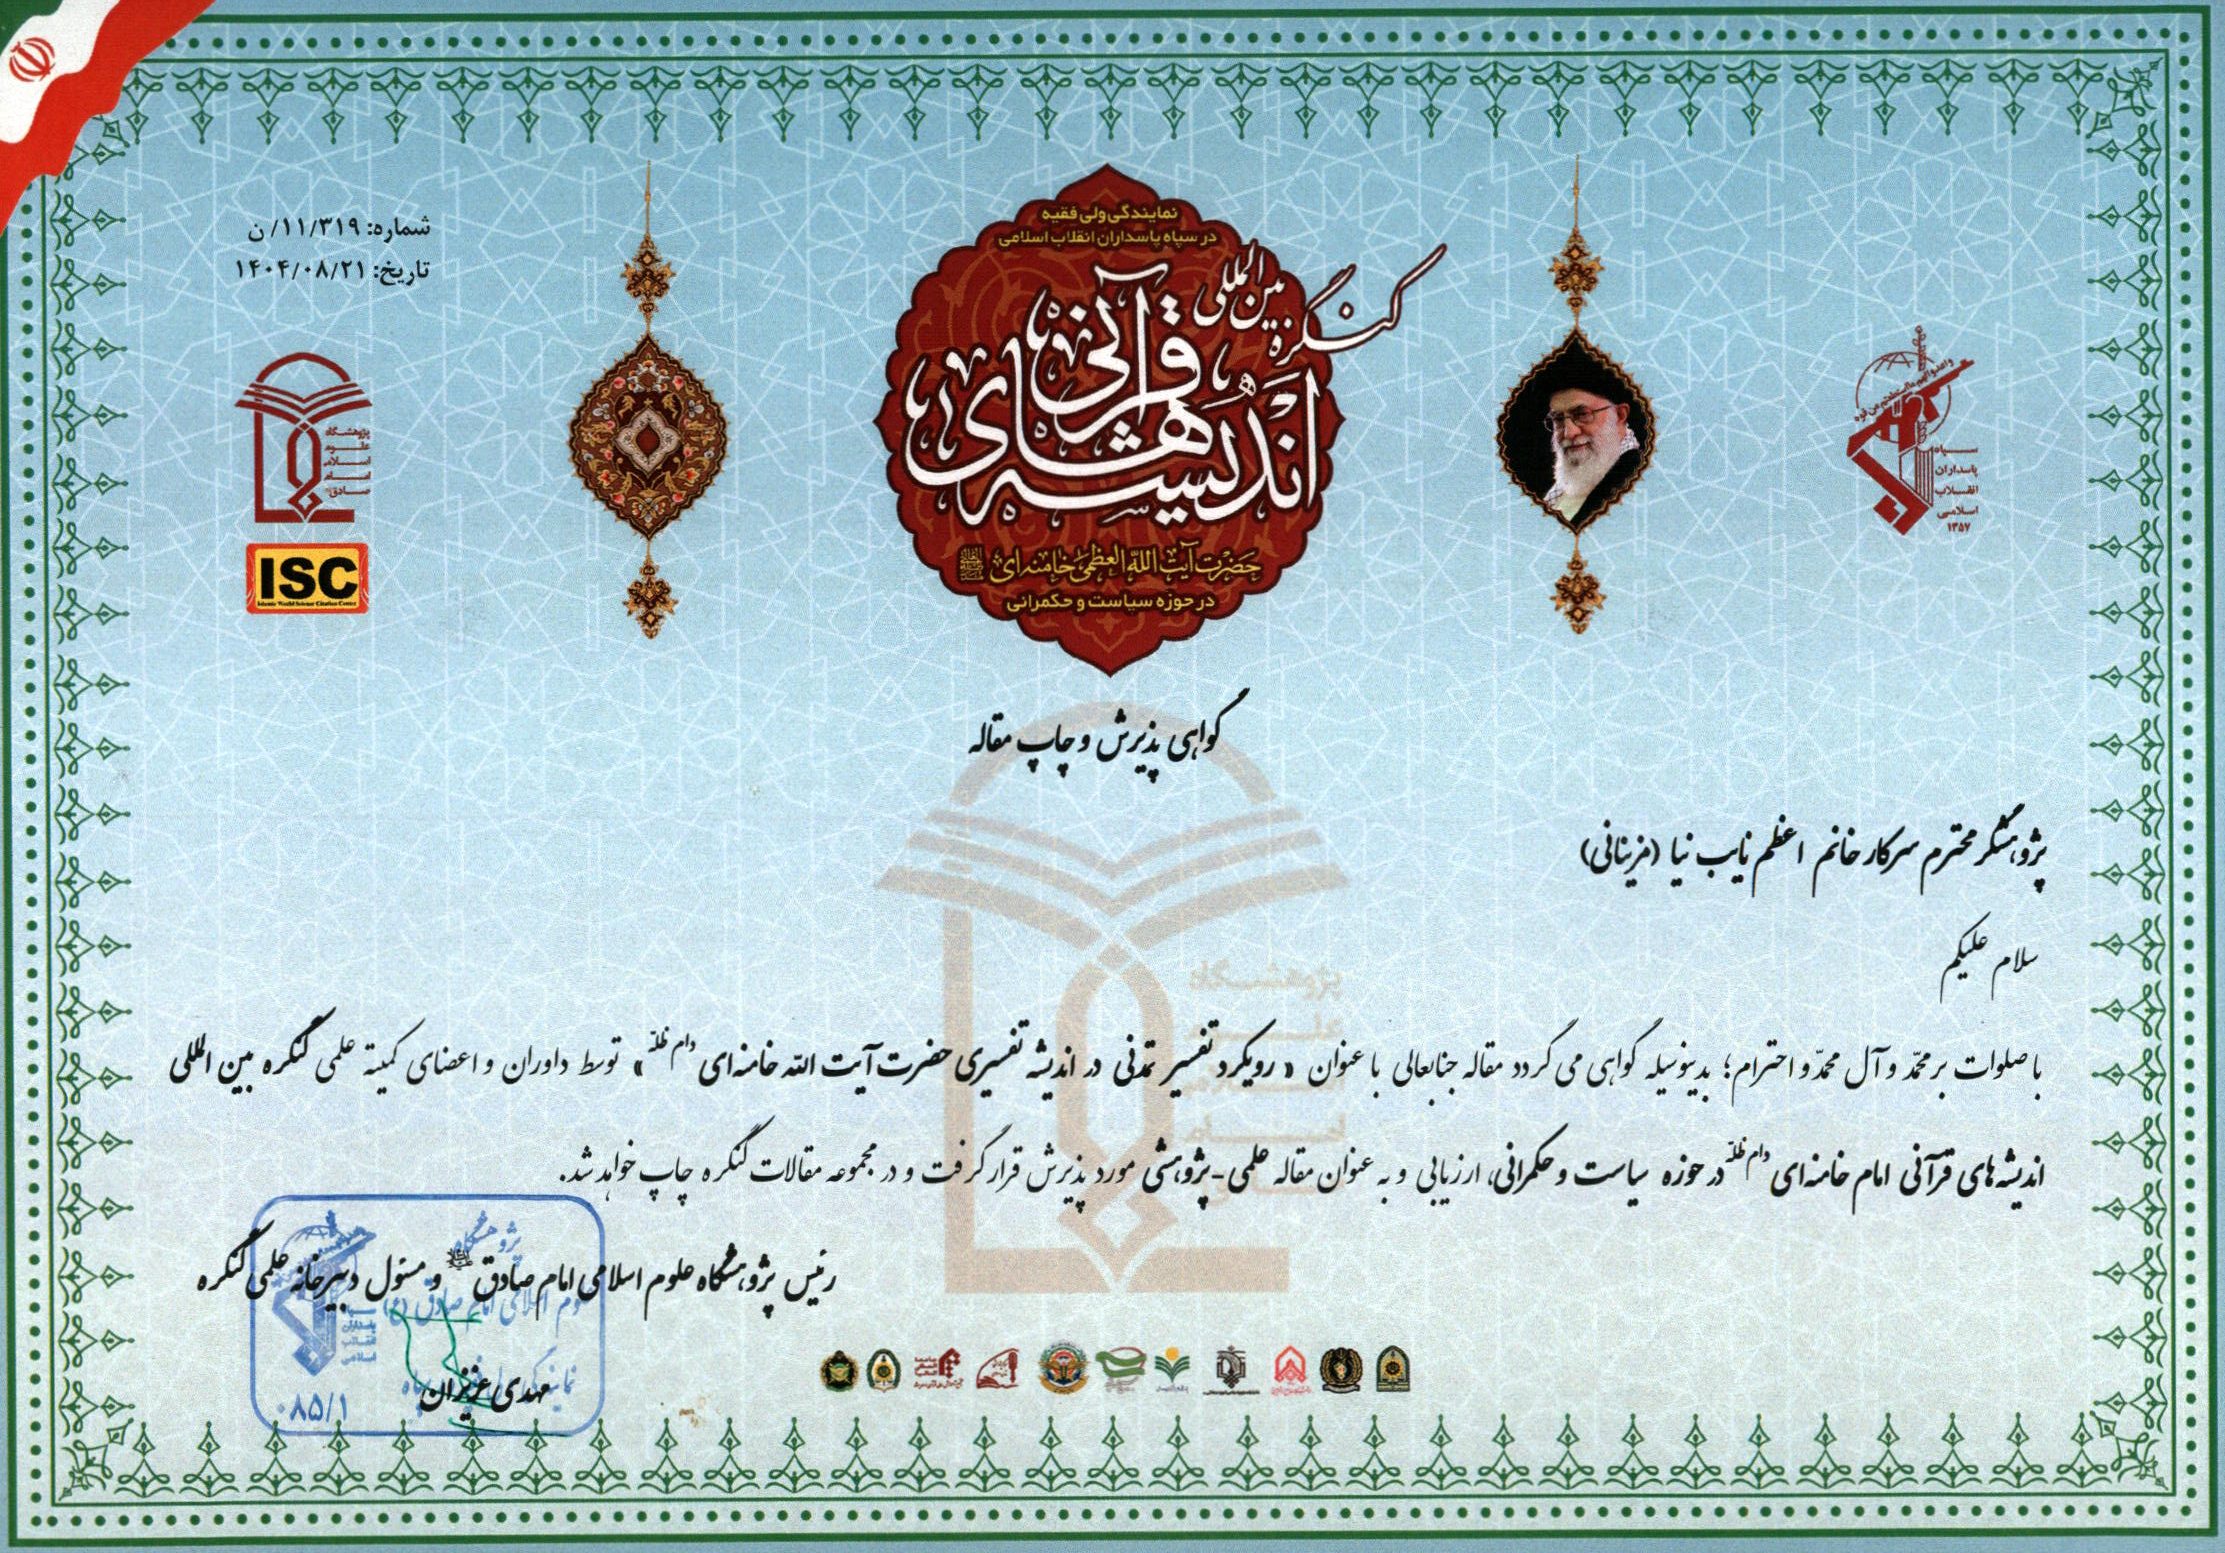 شماره: ۱۱/۳۱۹/ن
تاریخ: ۱۴۰۴/۰۸/۲۱
نمایندگی ولی فقیه
در سپاه پاسداران انقلاب اسلامی
کنگره بین المللی
اندیشه های قرآنی
حضرت آیت الله العظمی خامنه ای
در حوزه سیاست و حکمرانی
سپاه
پاسداران
انقلاب
اسلامی
۱۳۵۷
پژوهشگاه
علوم
اسلامی
امام
صادق
ISC
Islamic World Science Citation Center
گواهی پذیرش و چاپ مقاله
پژوهشگر محترم سرکار خانم اعظم نایب نیا (مزینانی)
سلام علیکم
با صلوات بر محمّد و آل محمّد و احترام؛ بدینوسیله گواهی می گردد مقاله جنابعالی با عنوان « رویکرد تفسیر تمدنی در اندیشه تفسیری حضرت آیت الله خامنه ای دام ظلّه » توسط داوران و اعضای کمیته علمی کنگره بین المللی
اندیشه های قرآنی امام خامنه ای دام ظلّه در حوزه سیاست و حکمرانی، ارزیابی و به عنوان مقاله علمی-پژوهشی مورد پذیرش قرار گرفت و در مجموعه مقالات کنگره چاپ خواهد شد.
رئیس پژوهشگاه علوم اسلامی امام صادق و مسئول دبیرخانه علمی کنگره
مهدی عزیزان
پژوهشگاه
علوم اسلامی امام صادق (ع)
سپاه
پاسداران
انقلاب
اسلامی
۰۸۵/۱